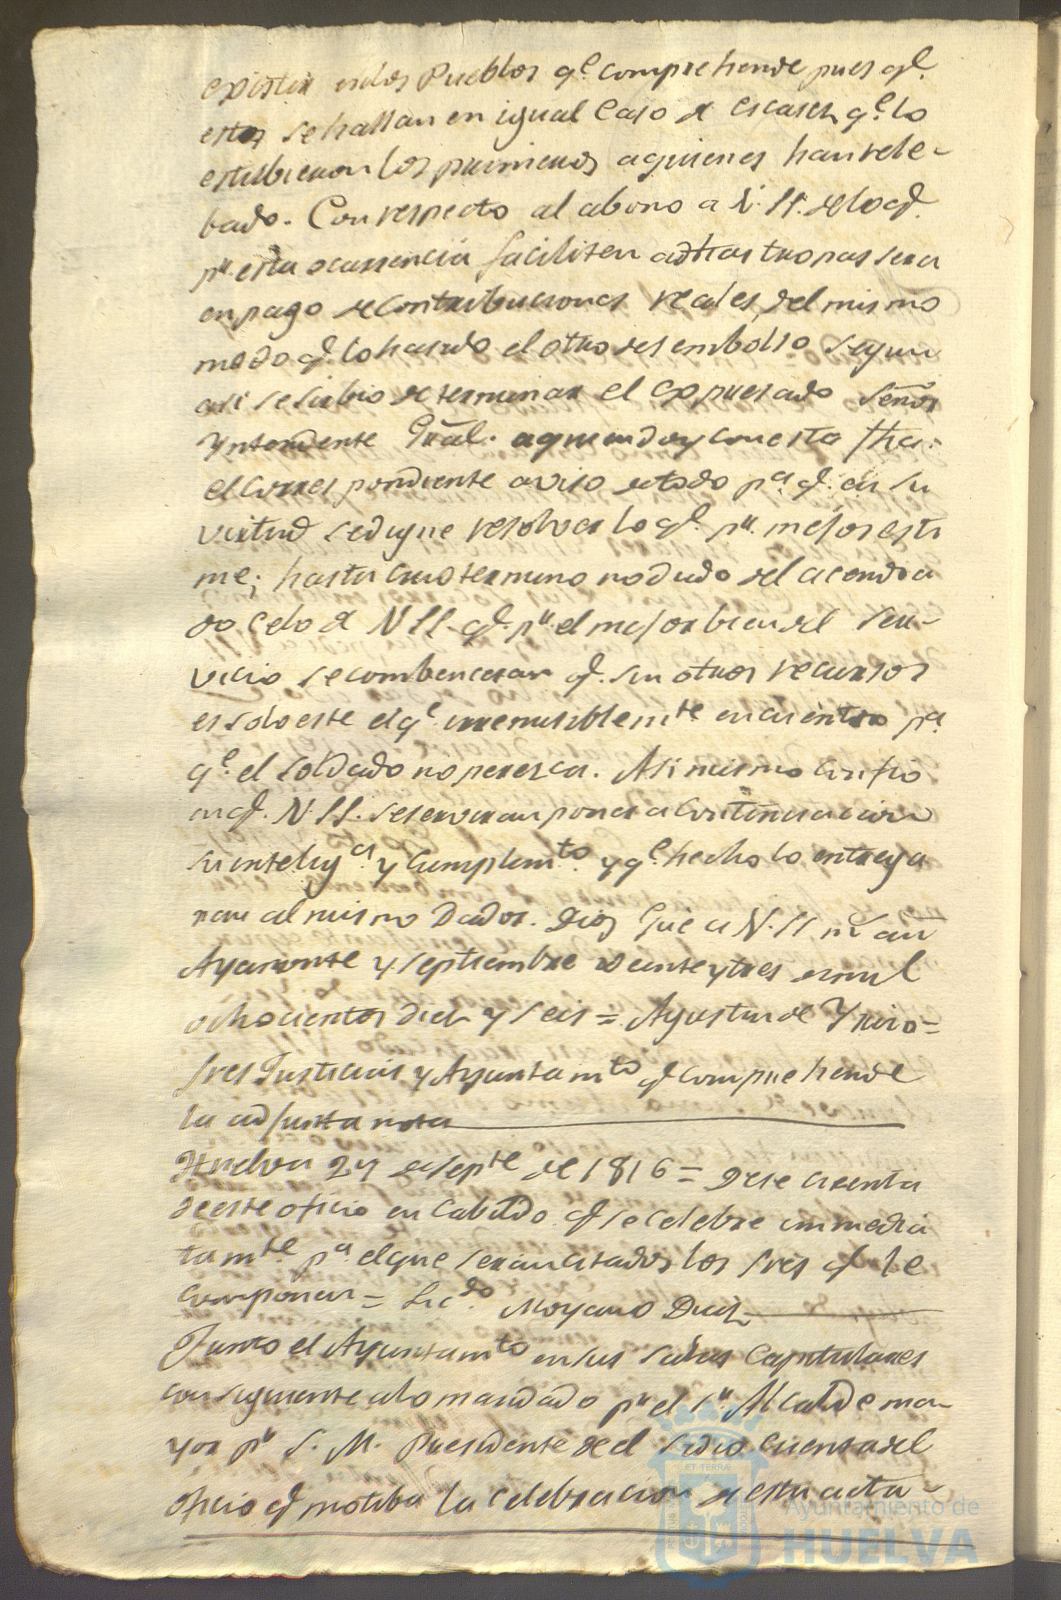 existir en los Pueblos q.e comprehende pues q.e
estos se hallan en igual Caso de escases q.e lo
estubieron los primeros a quienes han rele-
bado. Con respecto al abono a V. SS. de lo q.e
p.r esta ocurrencia faciliten a dhas tropas sera
en pago de Contribuciones reales, del mismo
modo q.e lo ha sido el otro desembolso segun
asi se sirbio determinar el expresado Señor
Yntendente Gral. aquien doy con esta fha.
el correspondiente aviso de todo p.a q.e en su
virtud se digne resolver lo q.e p.r mejor esti
me; hasta cuio termino no dudo del acendra
do celo de V SS. q.e p.r el mejor bien del Ser-
vicio se combenceran q.e sin otros recursos
es solo este el q.e irremisiblem.te encuentro p.a
q.e el Soldado no peresca. Asi mismo confio
en q.e V. SS. se serviran poner a Continuacion
su intelig.a y Cumplim.to y q.e hecho lo entrega
ran al mismo Dador. Dios Gue a V. SS m.s an.s
Ayamonte y Septiembre veinte y tres de mil
ochocientos diez y seis = Agustin de
Sres Justicias y Ayuntam.to q.e comprehende
la adjunta nota
Huelva 24 de Sept.e de 1816 = Dese cuenta
de este oficio en Cabildo q.e se celebre inmedia
tam.te p.a el que seran citados los Sres q.e le
componen = Lic.do Moyano Diez
Junto el Ayuntam.to en sus Salas Capitulares
consiguiente a lo mandado p.r el S.r Alcalde ma-
yor p.r S. M. Presidente de el se dio Cuenta del
oficio q.e motiba la celebracion de esta acta-
Ayuntamiento de
HUELVA